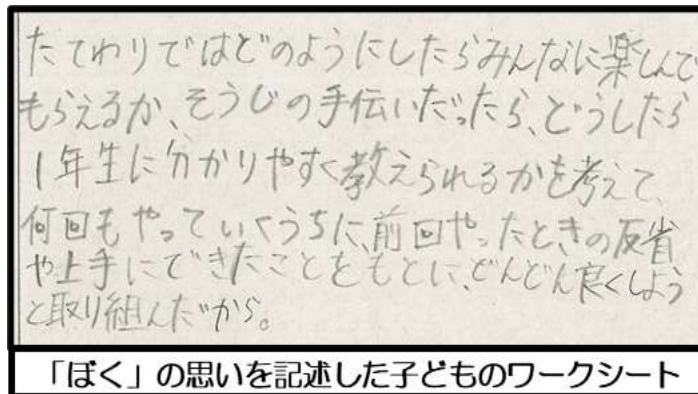 たてわりではどのようにしたらみんなに楽しんで
もらえるか、そうじの手伝いだったら、どうしたら
1年生に分かりやすく教えられるかを考えて、
何回もやっていくうちに、前回やったときの反省
や上手にできたことをもとに、どんどん良くしよう
と取り組んだから。
「ぼく」の思いを記述した子どものワークシート